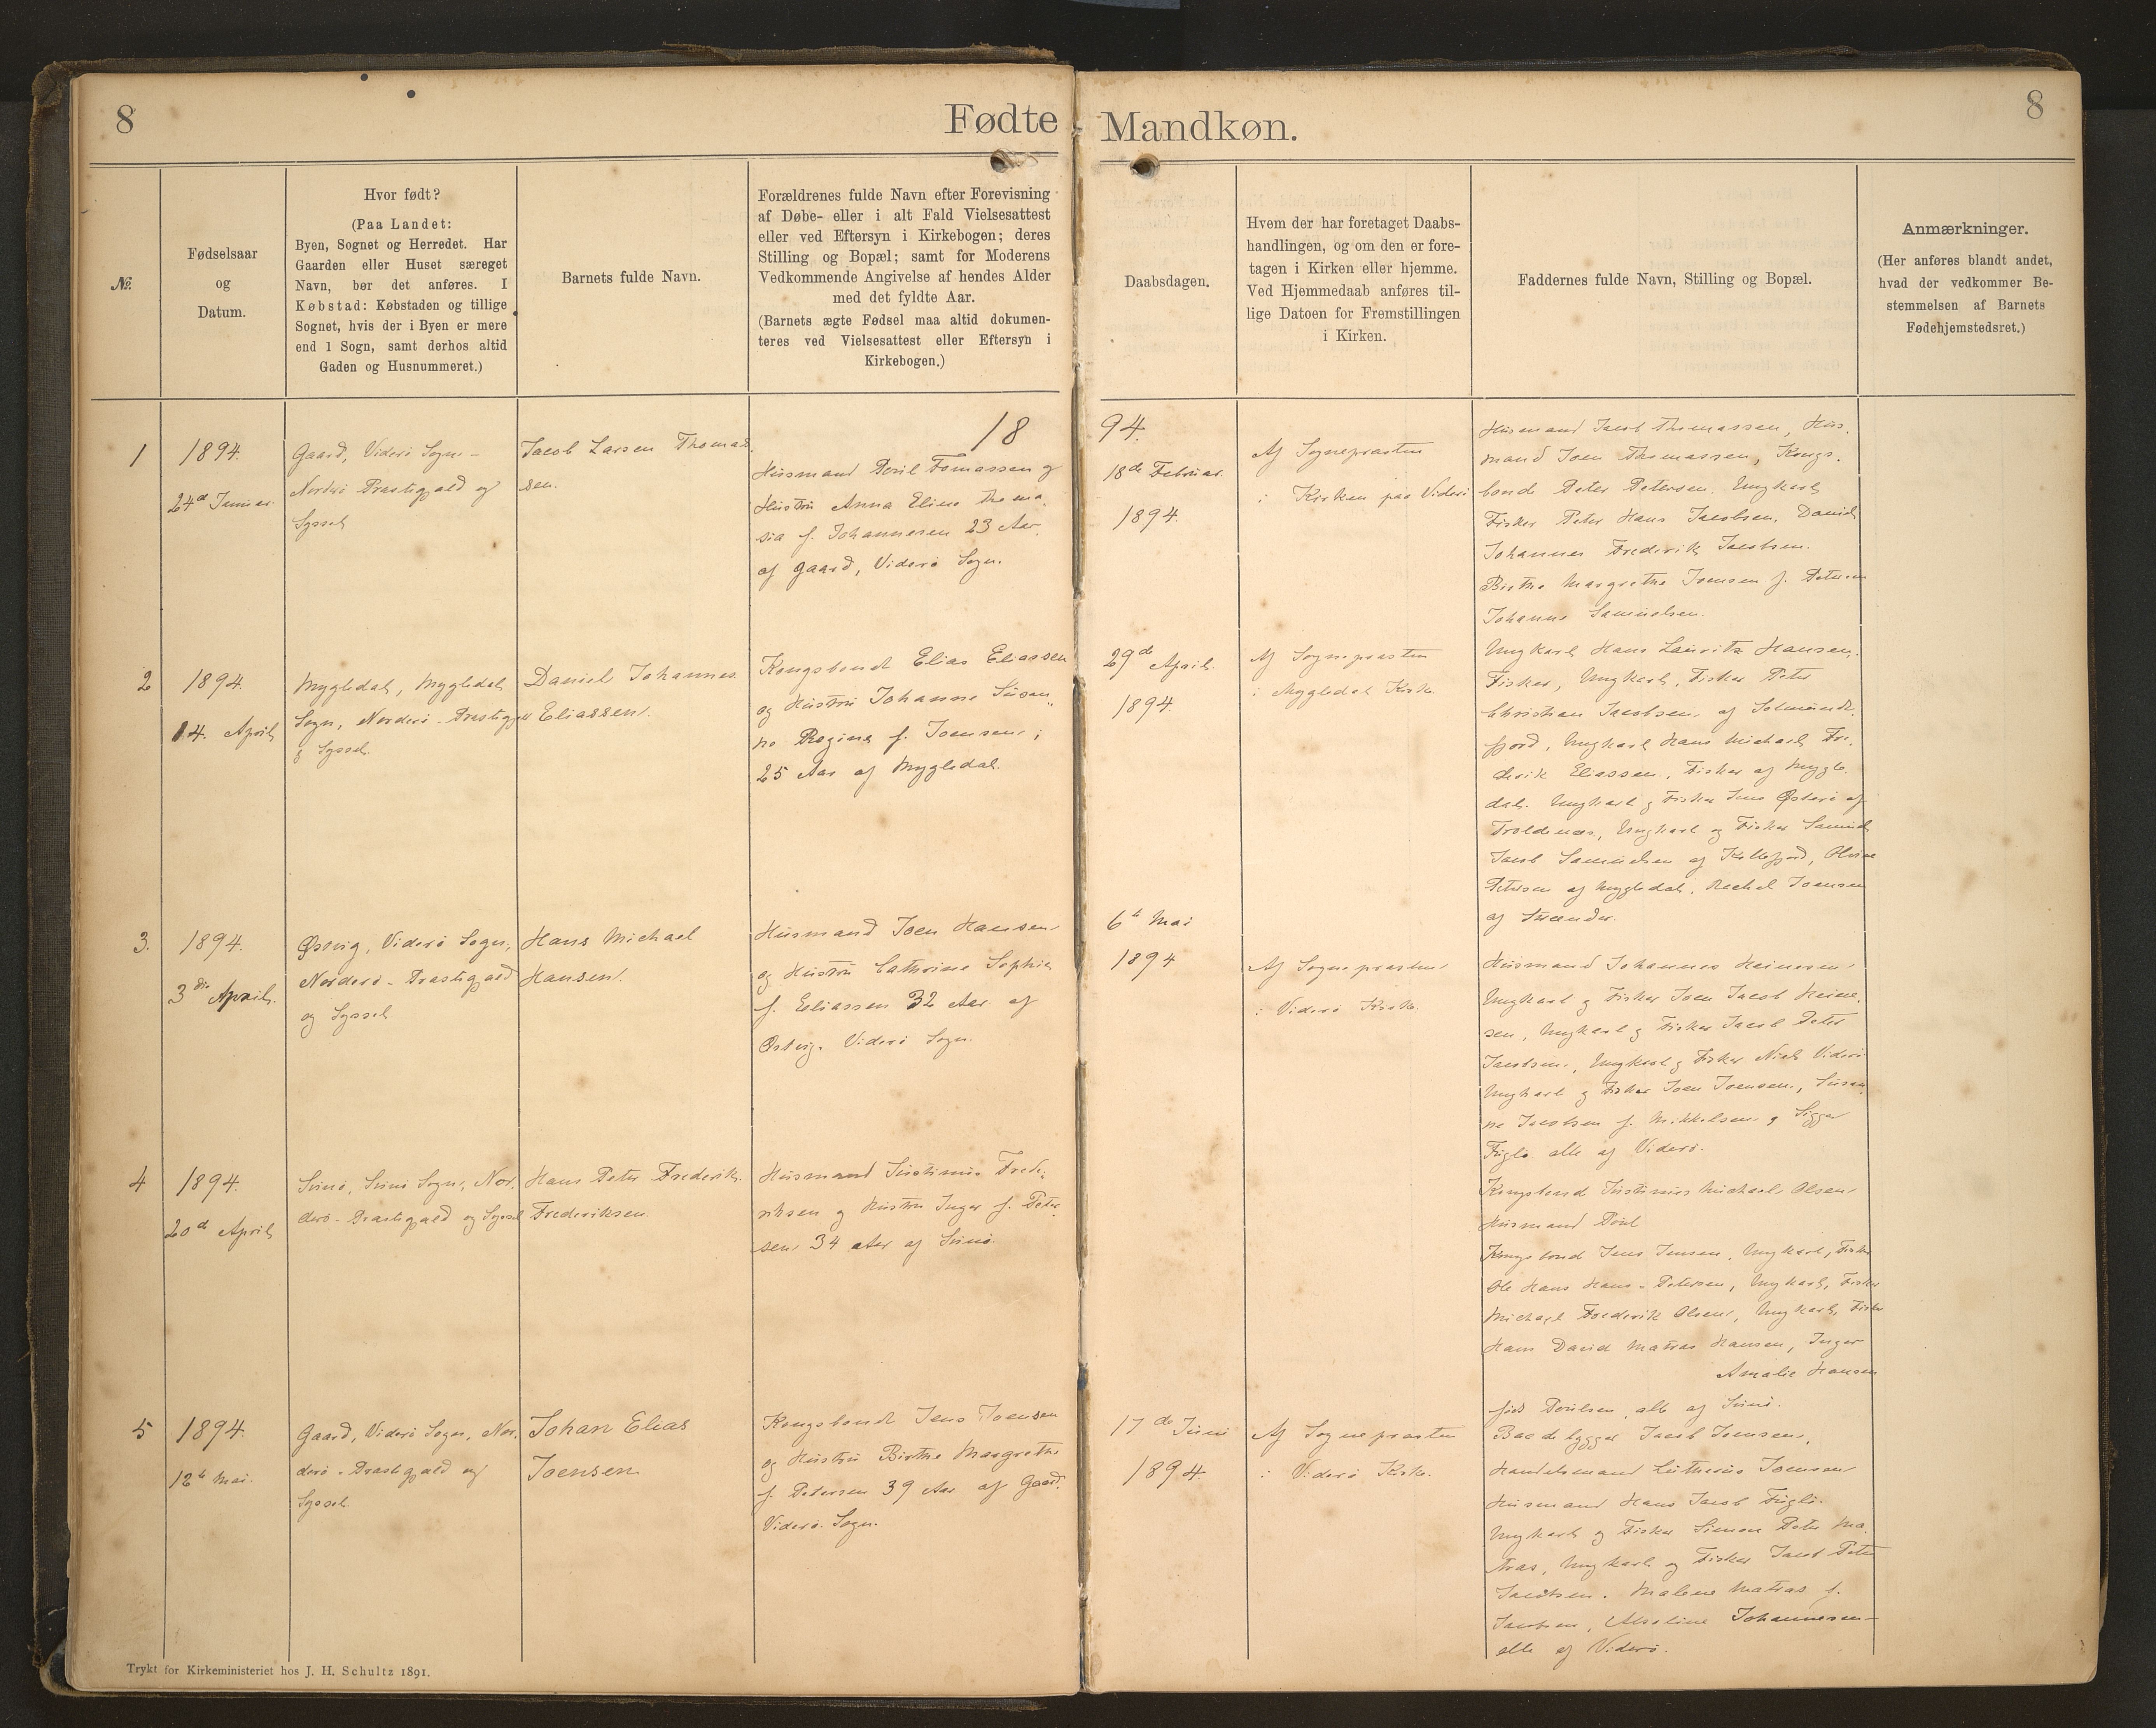 8
Fødte
Mandkøn.
8
№.
Fødselsaar
og
Datum.
Hvor født?
(Paa Landet:
Byen, Sognet og Herredet. Har
Gaarden eller Huset særeget
Navn, bør det anføres. I
Købstad: Købstaden og tillige
Sognet, hvis der i Byen er mere
end 1 Sogn, samt derhos altid
Gaden og Husnummeret.)
Barnets fulde Navn.
Forældrenes fulde Navn efter Forevisning
af Døbe- eller i alt Fald Vielsesattest
eller ved Eftersyn i Kirkebogen; deres
Stilling og Bopæl; samt for Moderens
Vedkommende Angivelse af hendes Alder
med det fyldte Aar.
(Barnets ægte Fødsel maa altid dokumen-
teres ved Vielsesattest eller Eftersyn i
Kirkebogen.)
Daabsdagen.
Hvem der har foretaget Daabs-
handlingen, og om den er fore-
tagen i Kirken eller hjemme.
Ved Hjemmedaab anføres til-
lige Datoen for Fremstillingen
i Kirken.
Faddernes fulde Navn, Stilling og Bopæl.
Anmærkninger.
(Her anføres blandt andet,
hvad der vedkommer Be-
stemmelsen af Barnets
Fødehjemstedsret.)
18
94.
1
1894.
24d Januar.
Gaard, Viderø Sogn -
Norderø Præstegjæld og
Syssel
Jacob Larsen Thomas
sen.
Husmand Poul Tomassen og
Hustru Anna Eline Thoma
sia f. Johannesen 23 Aar.
af Gaard, Viderø Sogn.
18de Februar
1894.
Af Sognepræsten
i Kirken paa Viderø
Husmand Jacob Thomassen, Hus.
mand Joen Thomassen, Kongs.
bonde Peter Petersen, Ungkarl
Fisker Peter Hans Jacobsen, Daniel
Johannes Frederik Jacobsen.
Birthe Margrethe Joensen f. Petersen
Johanne Samuelsen.
2
1894.
14. April
Mygledal, Mygledal
Sogn, Norderø-Præstegjæld
& Syssel.
Daniel Johannes
Eliassen.
Kongsbonde Elias Eliassen
og Hustru Johanne Susan
ne Regine f. Joensen,
25 Aar af Mygledal.
29de April.
1894.
Af Sognepræsten
i Mygledal Kirke.
Ungkarl Hans Lauritz Hansen,
Fisker, Ungkarl, Fisker Peter
Christian Jacobsen, af Solmunde.
fjord, Ungkarl Hans Michael Fre.
derik Eliassen, Fisker af Mygle.
dal. Ungkarl & Fisker Jens Østerø af
Troldenæs, Ungkarl og Fisker Samuel
Jacob Samuelsen af Kollefjord,
Petersen af Mygledal, Rachel Joensen
af Strænder.
3.
1894.
3die April.
Østvig, Viderø Sogn,
Norderø-Præstegjæld
og Syssel
Hans Michael
Hansen.
Husmand Joen Hansen
og Hustru Cathrine Sophie
f. Eliassen 32 Aar af
Østvig, Viderø Sogn.
6te Mai
1894
Af Sognepræsten
i Viderø Kirke.
Husmand Johannes Heinesen
Ungkarl & Fisker Joen Jacob Heine.
sen, Ungkarl & Fisker Jacob Peter
Jacobsen, Ungkarl & Fisker Niels Viderø
Ungkarl & Fisker Joen Joensen, Susan
ne Jacobsen f. Mikkelsen, & Sigga
Fuglø alle af Viderø.
4
1894.
20d April
Svinø, Svinø Sogn, Nor.
derø-Præstegjæld og Syssel
Hans Peter Frederik
Frederiksen.
Husmand Justinus Frede.
riksen og Hustru Inger f. Peter
sen 34 Aar af Svinø.
Kongsbond Justinus Michael Olsen
Husmand Poul
Kongsbond Jens Jensen, Ungkarl, Fisker
Ole Hans Hans-Petersen, Ungkarl, Fisker
Michael Frederik Olsen, Ungkarl, Fisker
Hans David Matras Hansen, Inger
Amalie Hansen
født Poulsen, alle af Svinø.
5
1894.
12te Mai.
Gaard, Viderø Sogn, Nor.
derø-Præstegjæld og
Syssel.
Johan Elias
Joensen
Kongsbonde Jens Joensen
og Hustru Birthe Margrethe
f. Petersen 39 Aar af Gaard.
Viderø Sogn.
17de Juni
1894.
Af Sognepræsten
i Viderø Kirke.
Baadebygger Jacob Joensen,
Handelsmand Lutherus Joensen
Husmand Hans Jacob Fuglø.
Ungkarl og Fisker Simon Peter Ma.
tras, Ungkarl og Fisker Jacob Peter
Jacobsen. Malene Matras f.
Jacobsen, Johannesen
alle af Viderø.
Trykt for Kirkeministeriet hos J. H. Schultz 1891.